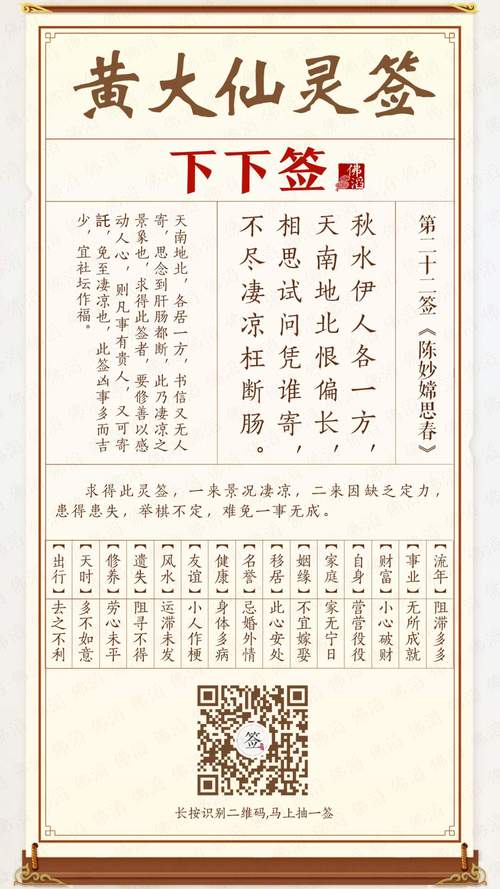 黄大仙灵签
下下签
佛滔
第二十二签《陈妙嫦思春》
秋水伊人各一方，
天南地北恨偏长，
相思试问凭谁寄，
不尽凄凉枉断肠。
天南地北，各居一方，书信又无人
寄，思念到肝肠都断，此乃凄凉之
景象也，求得此签者，要修善以感
动人心，则凡事有贵人，又可寄
託，免至凄凉也，此签凶事多而吉
少，宜社坛作福。
求得此灵签，一来景况凄凉，二来因缺乏定力，
患得患失，举棋不定，难免一事无成。
【流年】阻滞多多
【事业】无所成就
【财富】小心破财
【自身】营营役役
【家庭】家无宁日
【姻缘】不宜嫁娶
【移居】此心安处
【名誉】忌婚外情
【健康】身体多病
【友谊】小人作梗
【风水】运滞未发
【遗失】阻寻不得
【修养】劳心未平
【天时】多不如意
【出行】去之不利
签
长按识别二维码,马上抽一签